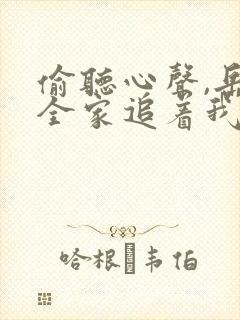 偷聽心聲,岳
全家追着我
哈根�韦伯